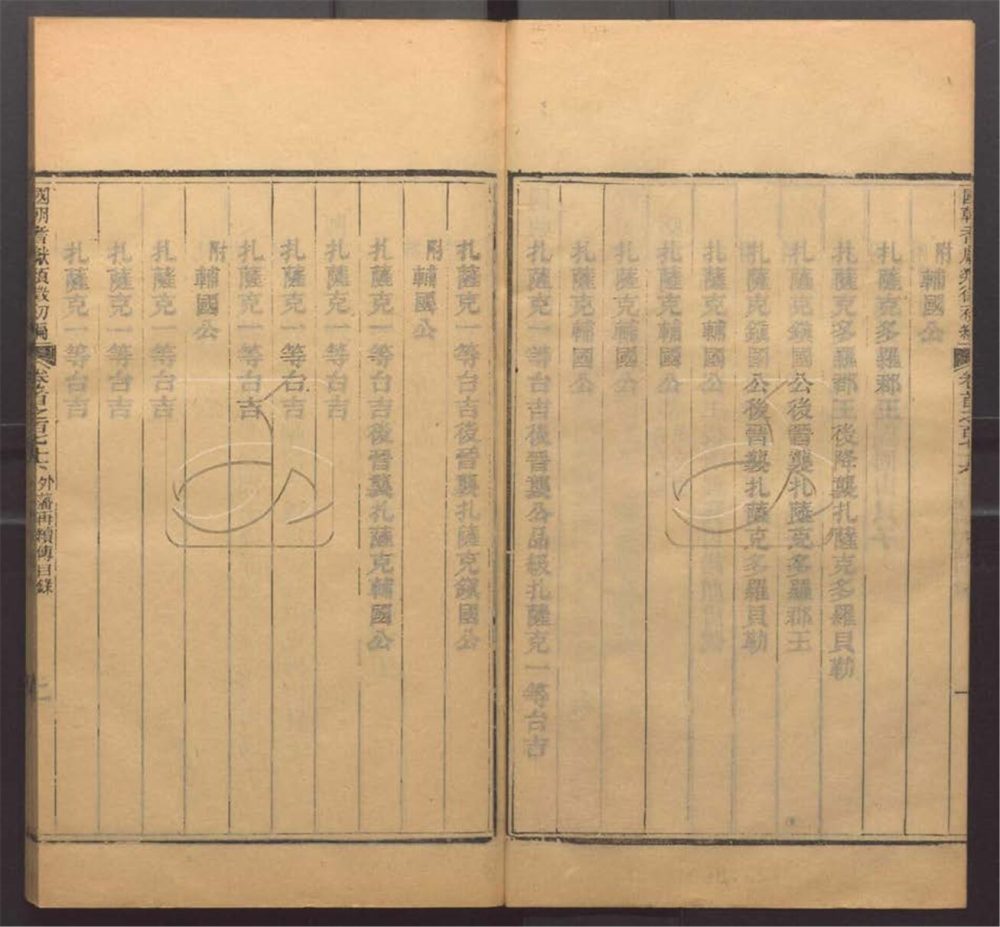 附輔國公
扎薩克多羅郡王
扎薩克多羅郡王後降襲扎薩克多羅貝勒
扎薩克鎮國公後晉襲扎薩克多羅郡王
扎薩克鎮國公後晉襲扎薩克多羅貝勒
扎薩克輔國公
扎薩克輔國公
扎薩克輔國公
扎薩克輔國公
扎薩克一等台吉後晉襲公品級扎薩克一等台吉
扎薩克一等台吉後晉襲扎薩克鎮國公
附輔國公
扎薩克一等台吉後晉襲扎薩克輔國公
扎薩克一等台吉
扎薩克一等台吉
扎薩克一等台吉
附輔國公
扎薩克一等台吉
扎薩克一等台吉
扎薩克一等台吉
國朝耆獻類徵初編 卷首之百七十七 外藩再續傳目錄